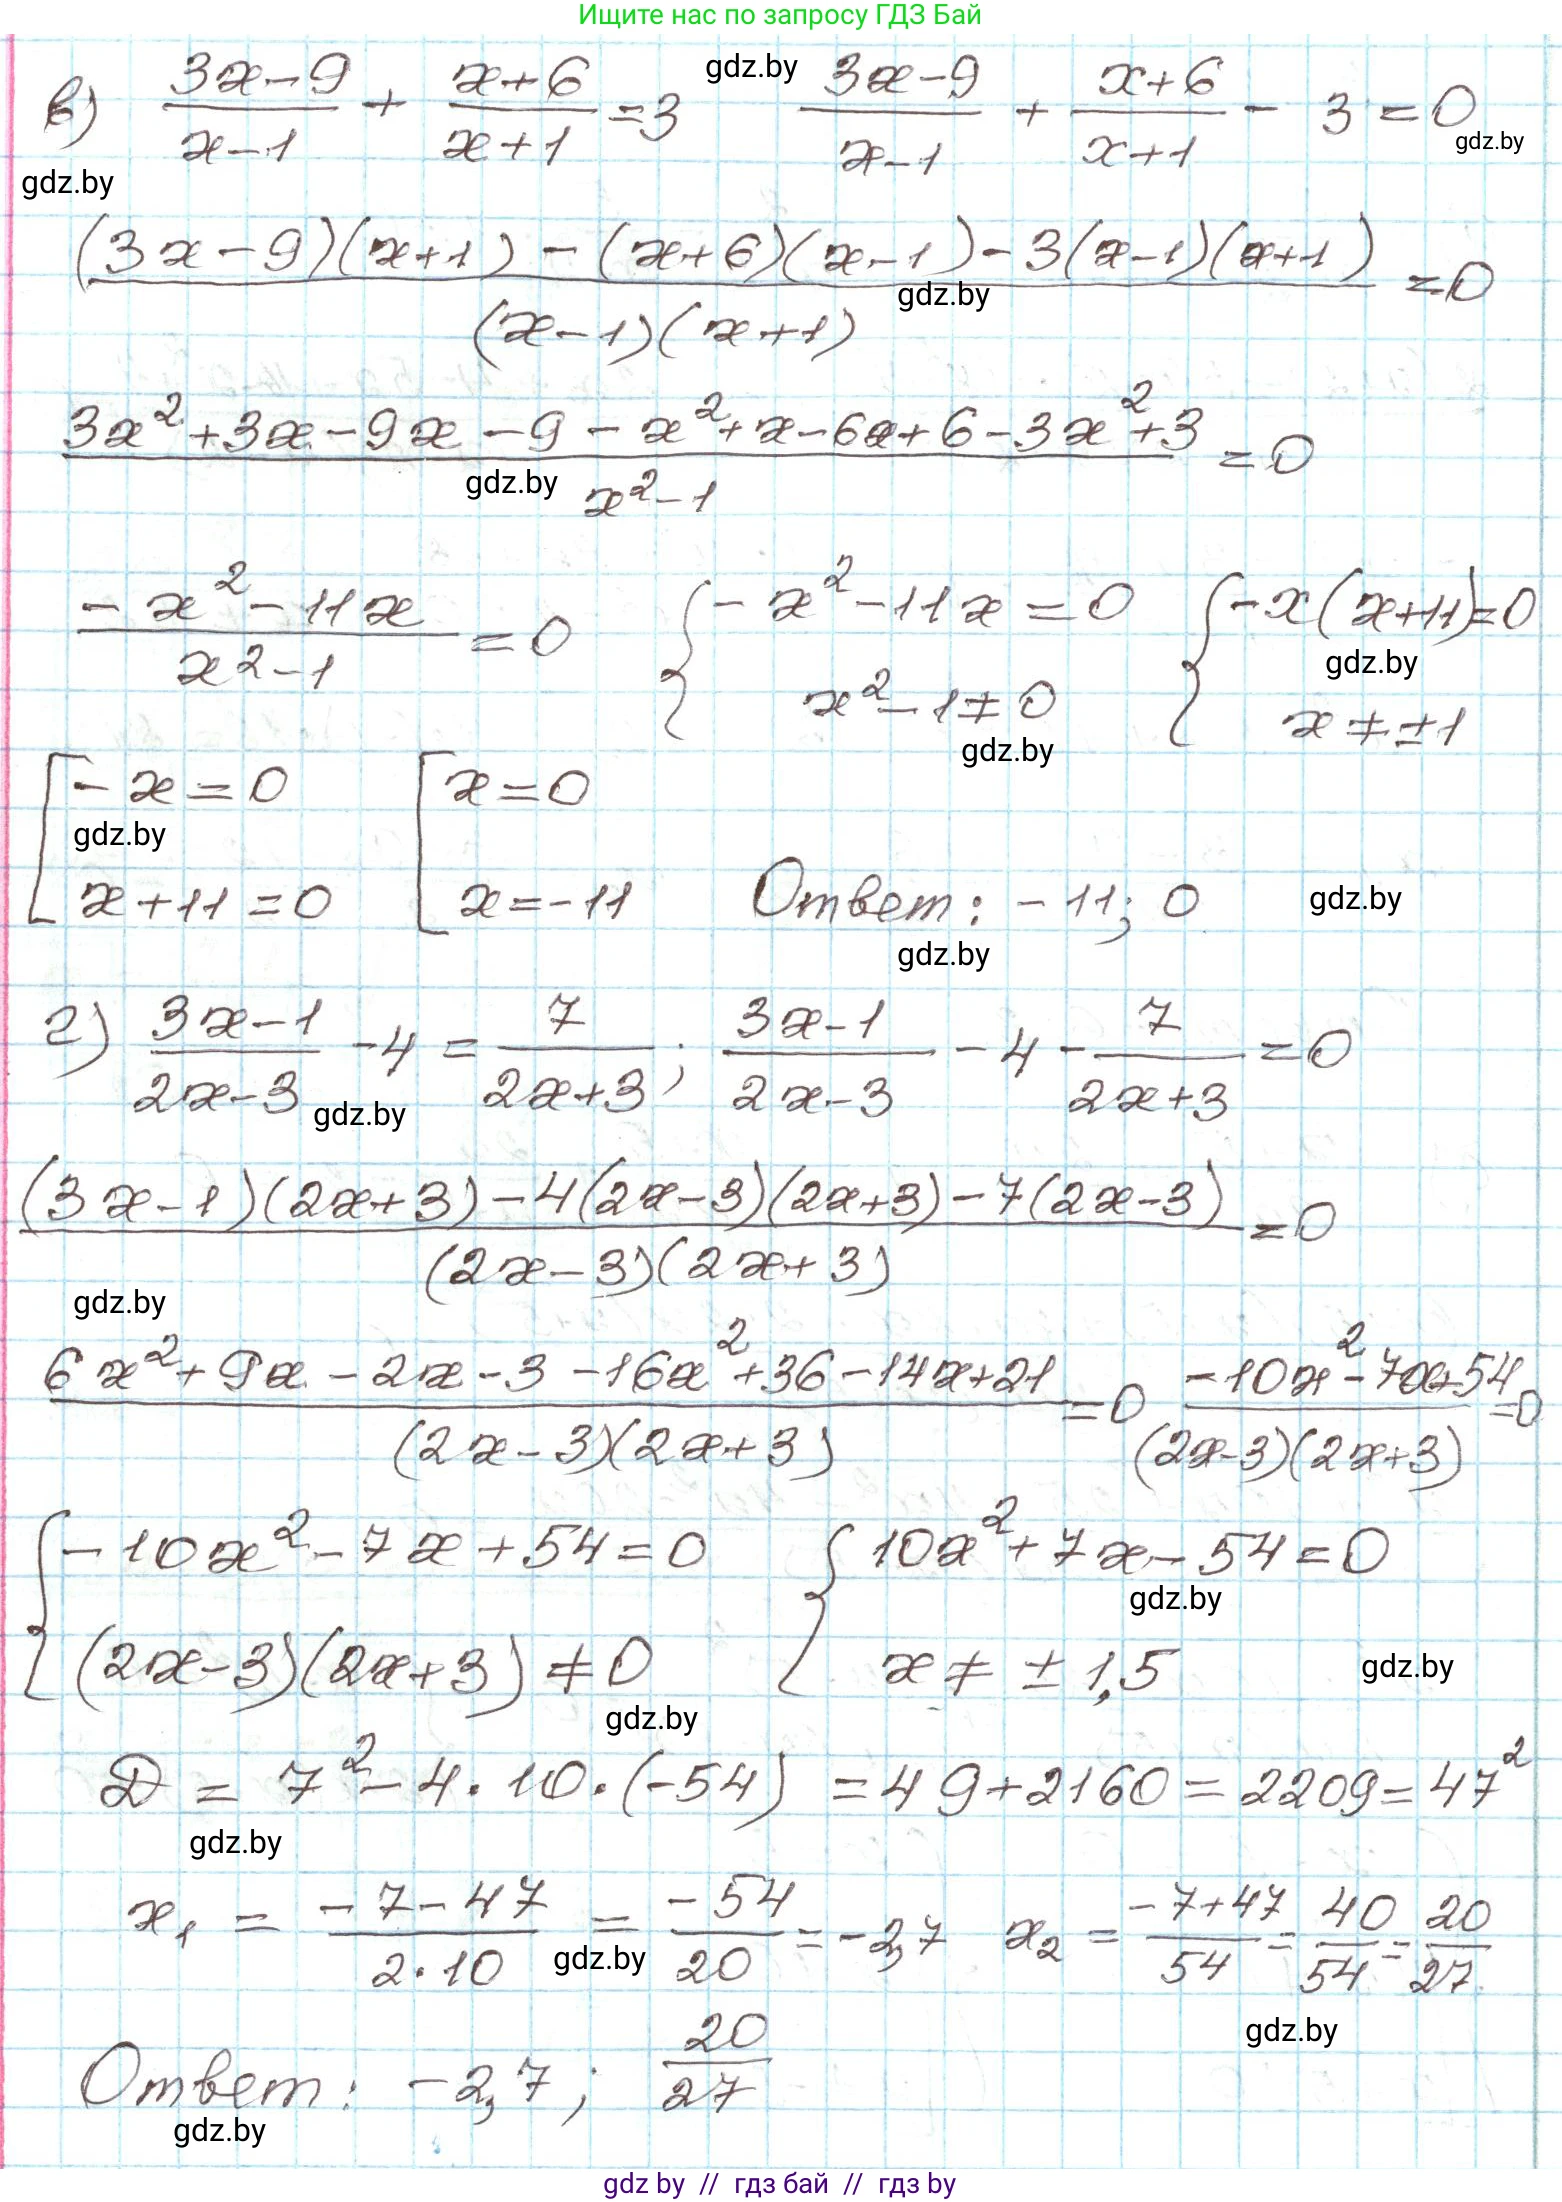 Ищите нас по запросу ГДЗ Бай
в) (3x-9)/(x-1) + (x+6)/(x+1) = 3 gdz.by (3x-9)/(x-1) + (x+6)/(x+1) - 3 = 0
gdz.by
gdz.by
((3x-9)(x+1) - (x+6)(x-1) - 3(x-1)(x+1))/((x-1)(x+1)) = 0
gdz.by
(3x²+3x-9x-9-x²+x-6x+6-3x²+3)/(x²-1) = 0
gdz.by
(-x²-11x)/(x²-1) = 0 { -x²-11x=0 { -x(x+11)=0
gdz.by
x²-1≠0 x≠±1
gdz.by
[ -x=0 [ x=0
gdz.by
x+11=0 x=-11 Ответ: -11; 0 gdz.by
gdz.by
г) (3x-1)/(2x-3) - 4 = 7/(2x+3); (3x-1)/(2x-3) - 4 - 7/(2x+3) = 0
gdz.by
((3x-1)(2x+3)-4(2x-3)(2x+3)-7(2x-3))/((2x-3)(2x+3)) = 0
gdz.by
(6x²+9x-2x-3-16x²+36-14x+21)/((2x-3)(2x+3)) = 0 (-10x²-7x+54)/((2x-3)(2x+3)) = 0
{ -10x²-7x+54=0 { 10x²+7x-54=0
gdz.by
(2x-3)(2x+3)≠0 x≠±1,5 gdz.by
gdz.by
D = 7²-4·10·(-54) = 49+2160 = 2209 = 47²
gdz.by
x₁ = (-7-47)/(2·10) = -54/20 = -2,7 x₂ = (-7+47)/54 = 40/54 = 20/27
gdz.by
gdz.by
Ответ: -2,7; 20/27
gdz.by
gdz by // гдз бай // гдз by